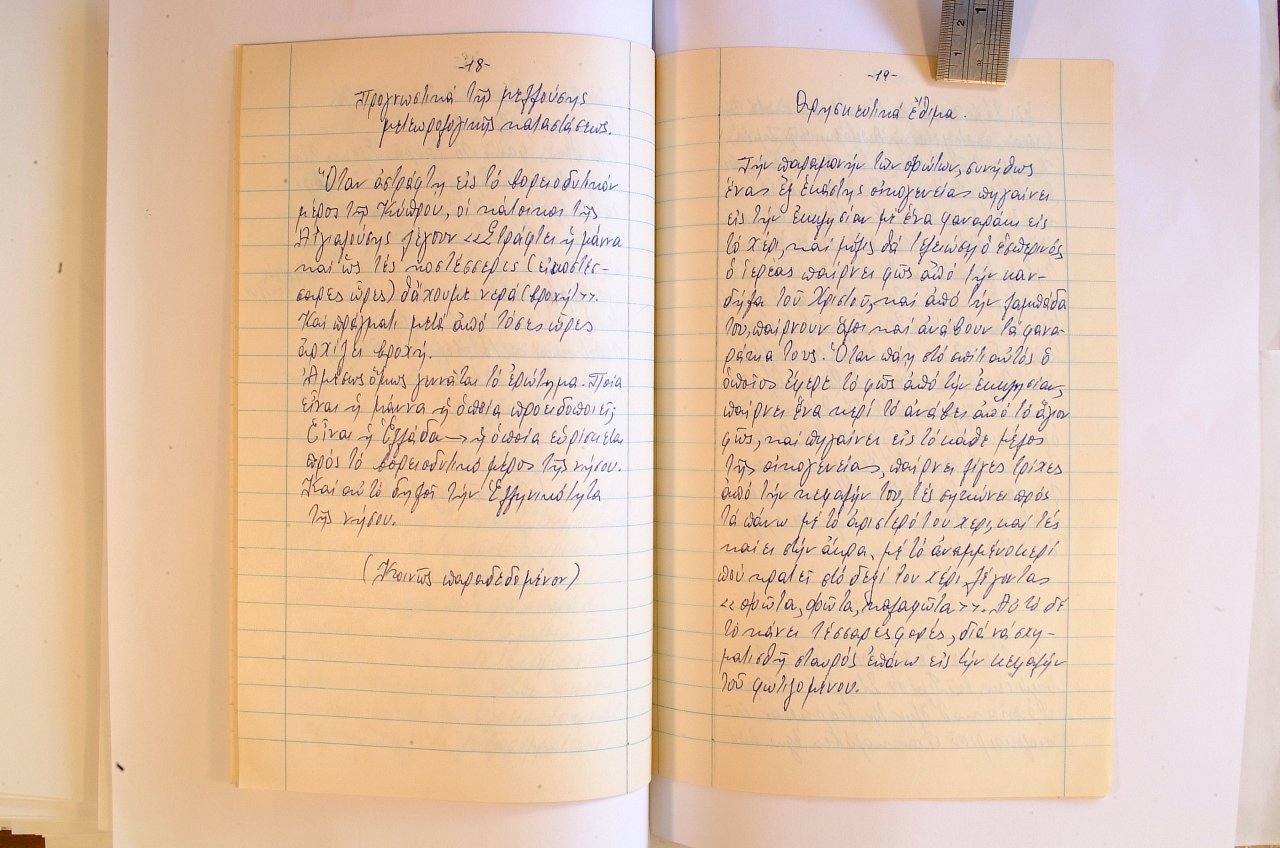 -18-
Προγνωστικά τῆς μελλούσης
μετεωρολογικῆς καταστάσεως.
Ὅταν ἀστράφτη εἰς τό βορειοδυτικόν
μέρος τῆς Κύπρου, οἱ κάτοικοι τῆς
Αἰγιαλούσης λέχουν <<Στράφτει ἡ μάννα
καί ὥς τές κοστέσσερις (εἰκοστέσ-
σαρες ὧρες) θἄχουμε νερά (βροχή)>>.
Καί πράγματι μετά ἀπό τόσες ὧρες
ἀρχίζει βροχή.
Ἀμέσως ὅμως γεννᾶται τό ἐρώτημα. Ποία
εἶναι ἡ μάννα ἡ ὁποία προειδοποιεῖ;
Εἶναι ἡ Ἑλλάδα → ἡ ὁποία εὑρίσκεται
πρός τό βορειοδυτικό μέρος τῆς νήσου.
Καί αὐτό δηλοῖ τήν Ἑλληνικότητα
τῆς νήσου.
(Κοινῶς παραδεδομένον)
-19-
Θρησκευτικά ἔθιμα.
Τήν παραμονήν των φώτων, συνήθως
ἕνας ἐξ ἑκάστης οἰκογενείας πηγαίνει
εἰς τήν ἐκκλησίαν με ἕνα φαναράκι εἰς
τό χέρι, καί μόλις θά τελειώση ὁ ἑσπερινός
ὁ ἱερέας παίρνει φῶς ἀπό τήν καν-
δήλα τοῦ Χριστοῦ, καί ἀπό τήν λαμπάδα
του, παίρνουν ὅλοι καί ἀνάβουν τά φανα-
ράκια τους. Ὅταν πάη στό σπίτι αὐτός ὁ
ὁποῖος ἔφερε τό φῶς ἀπό τήν ἐκκλησίαν,
παίρνει ἕνα κερί τό ἀνάβει ἀπό τό ἅγιον
φῶς, καί πηγαίνει εἰς τό κάθε μέλος
τῆς οἰκογενείας, παίρνει λίγες τρίχες
ἀπό τήν κεφαλήν του, τές σηκώνει πρός
τά πάνω μέ τό ἀριστερό του χέρι, καί τές
καίει στήν ἄκρα, μέ τό ἀναμμένο κερί
πού κρατεῖ στό δεξί του χέρι, λέγοντας
<<φῶτα, φῶτα, καλαφῶτα>>. Αὐτό δέ
τό κάνει τέσσαρες φορές, διά νά σχη-
ματισθῆ σταυρός ἐπάνω εἰς τήν κεφαλήν
τοῦ φωτιζομένου.
2
1
2
1